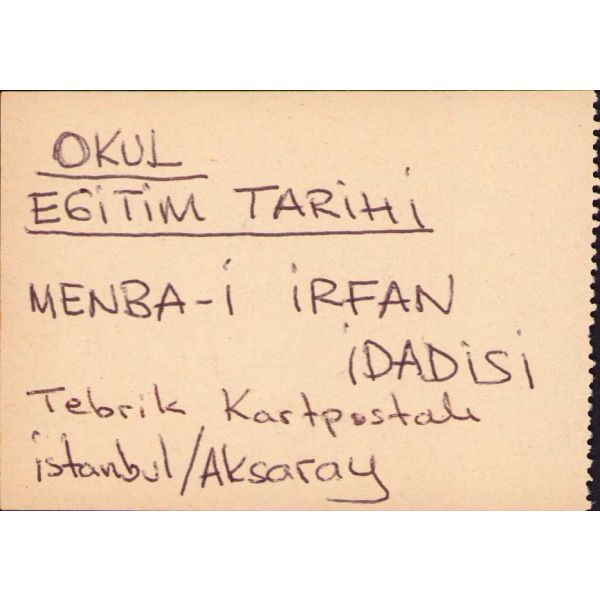 OKUL
EGİTİM TARİHİ
MENBA-İ İRFAN
İDADİSİ
Tebrik Kartpostalı
İstanbul/Aksaray